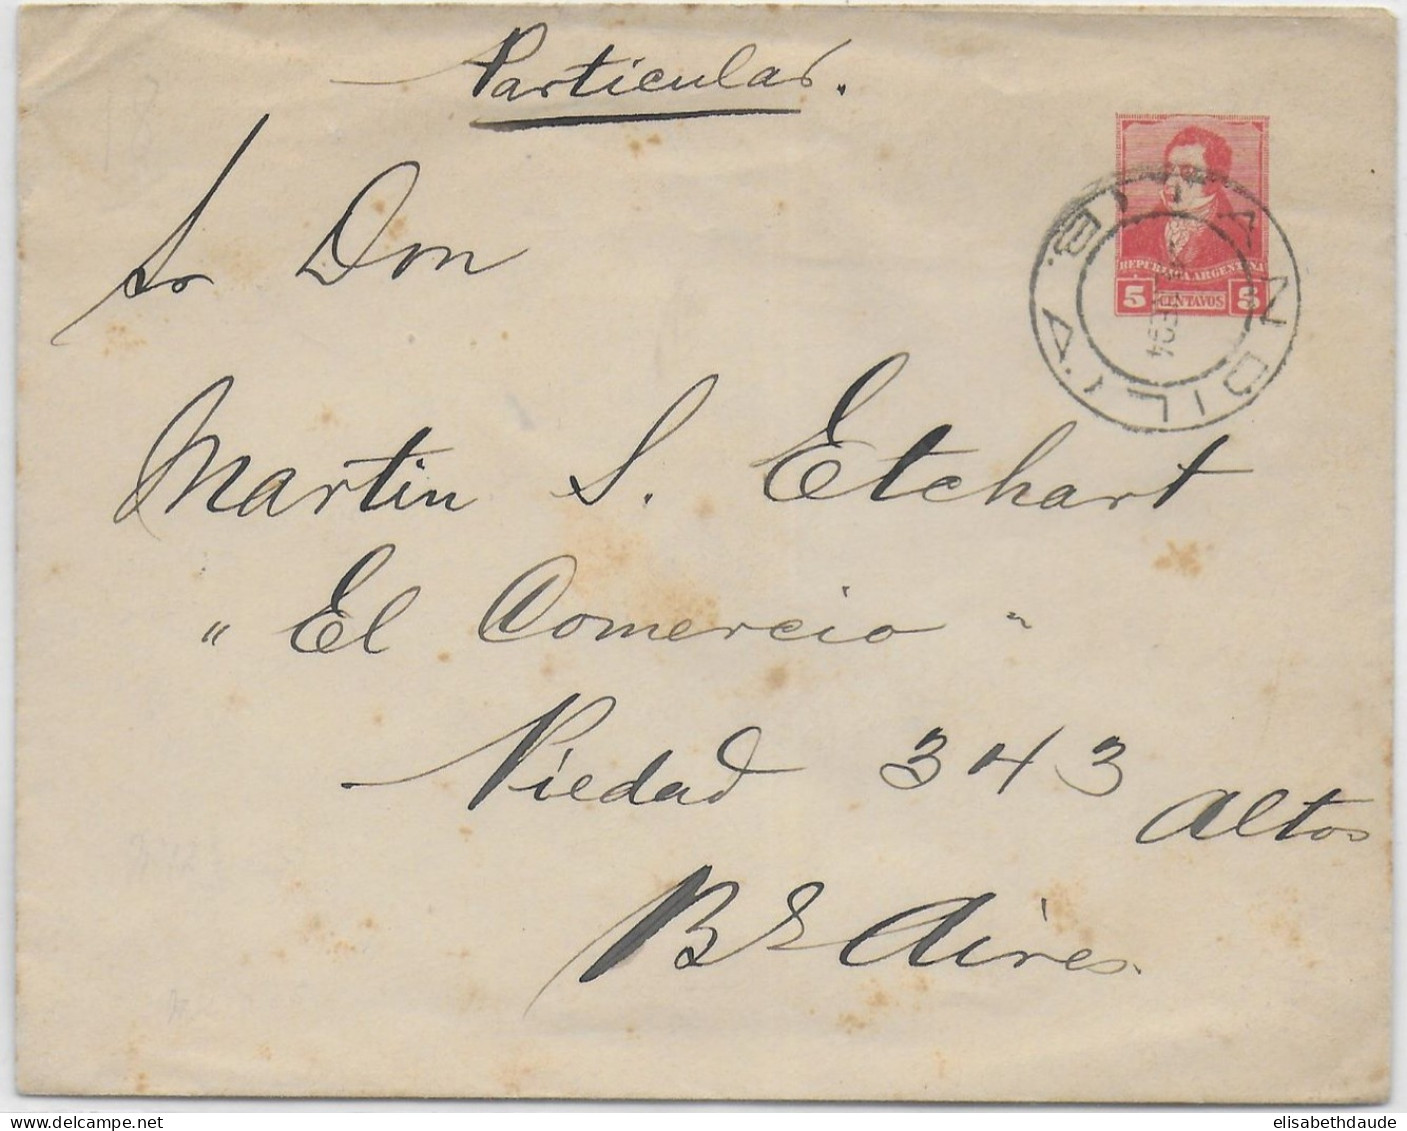 Particular.
REPUBLICA ARGENTINA
5 CENTAVOS 5
TANDIL
B. A.
94
Sr Don
Martin S. Etchart
" El Comercio "
Piedad 343
altos
Bs Aires.
elisabethdaude